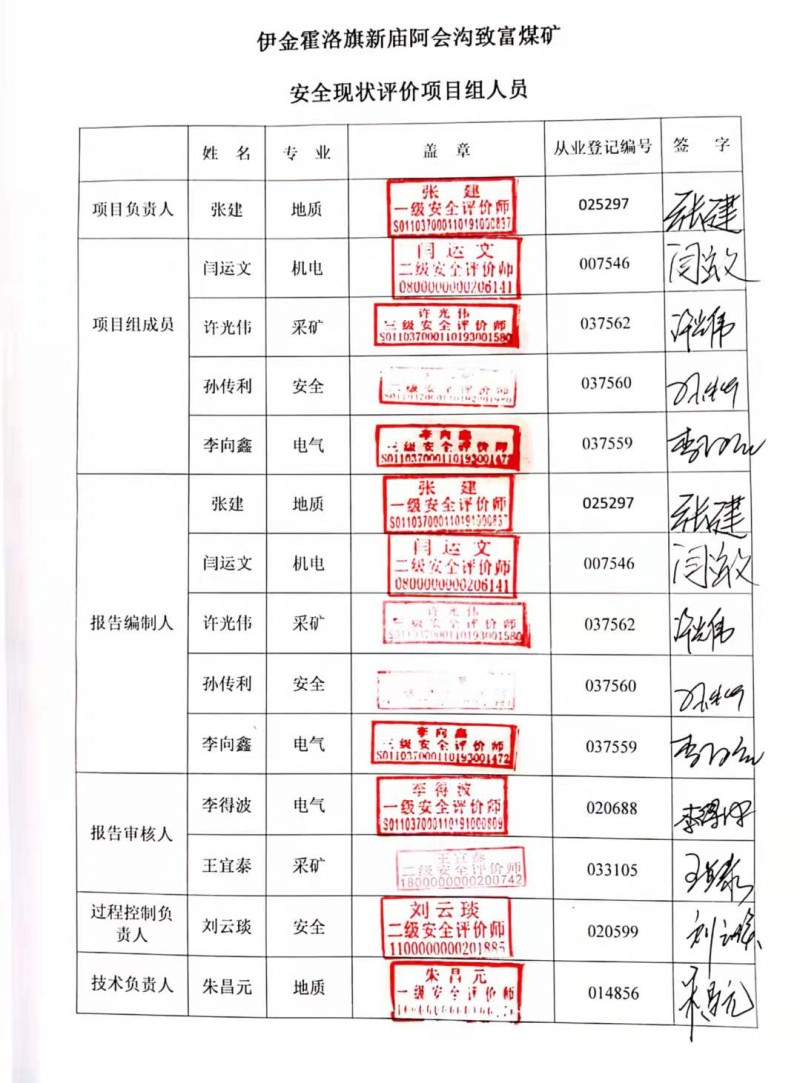 伊金霍洛旗新庙阿会沟致富煤矿
安全现状评价项目组人员
姓 名 专 业 盖 章 从业登记编号 签 字
项目负责人 张建 地质 025297 张建
张 建
一级安全评价师
S011037000110191000837
项目组成员
闫运文 机电 007546
闫 运 文
二级安全评价师
0800000000206141
许光伟 采矿 037562
许光伟
三级安全评价师
S011037000110193001580
孙传利 安全 037560
李向鑫 电气 037559
李向鑫
三级安全评价师
S011037000110193001472
报告编制人
张建 地质 025297 张建
张 建
一级安全评价师
S011037000110191000837
闫运文 机电 007546
闫 运 文
二级安全评价师
0800000000206141
许光伟 采矿 037562
许光伟
三级安全评价师
S011037000110193001580
孙传利 安全 037560
李向鑫 电气 037559
李向鑫
三级安全评价师
S011037000110193001472
报告审核人
李得波 电气 020688
李得波
一级安全评价师
S011037000110191000809
王宜泰 采矿 033105
王宜泰
二级安全评价师
1800000000200742
过程控制负
责人
刘云琰 安全 020599
刘云琰
二级安全评价师
1100000000201885
技术负责人 朱昌元 地质 014856
朱昌元
一级安全评价师